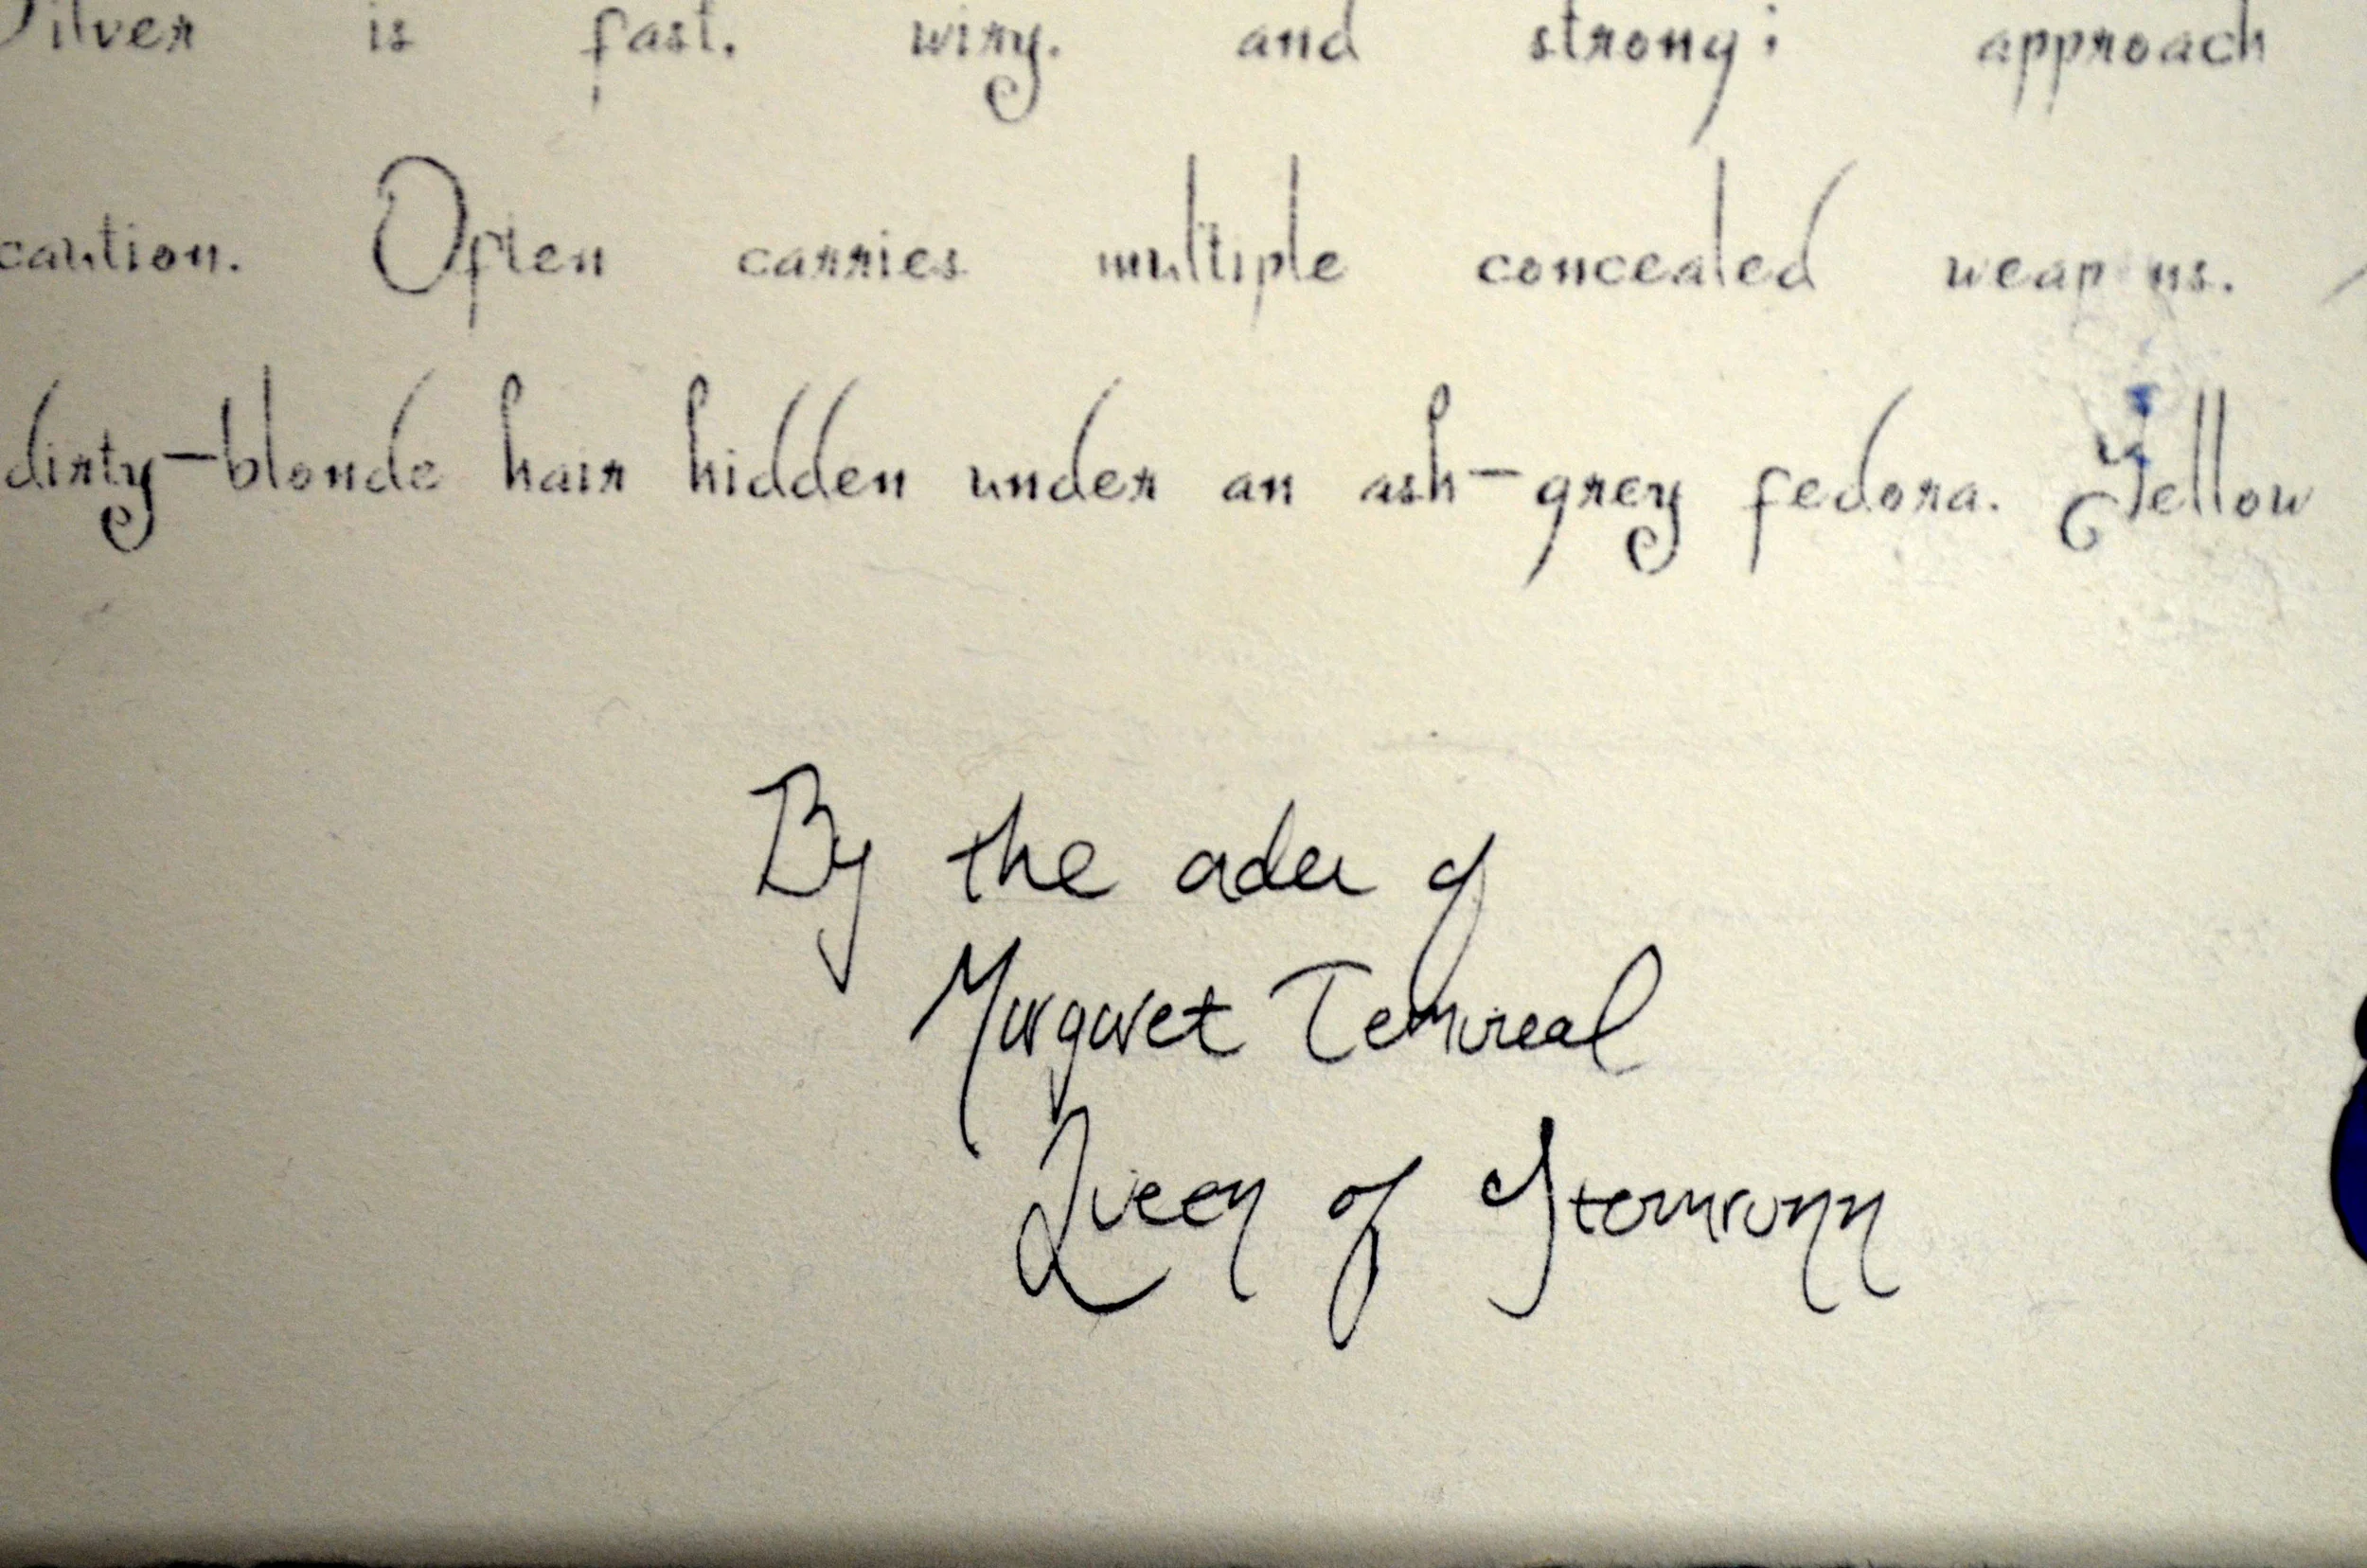 Silver is fast, wiry, and strong; approach
caution. Often carries multiple concealed weap ns.
dirty-blonde hair hidden under an ash-grey fedora. Yellow
By the order of
Margaret Temireal
Queen of